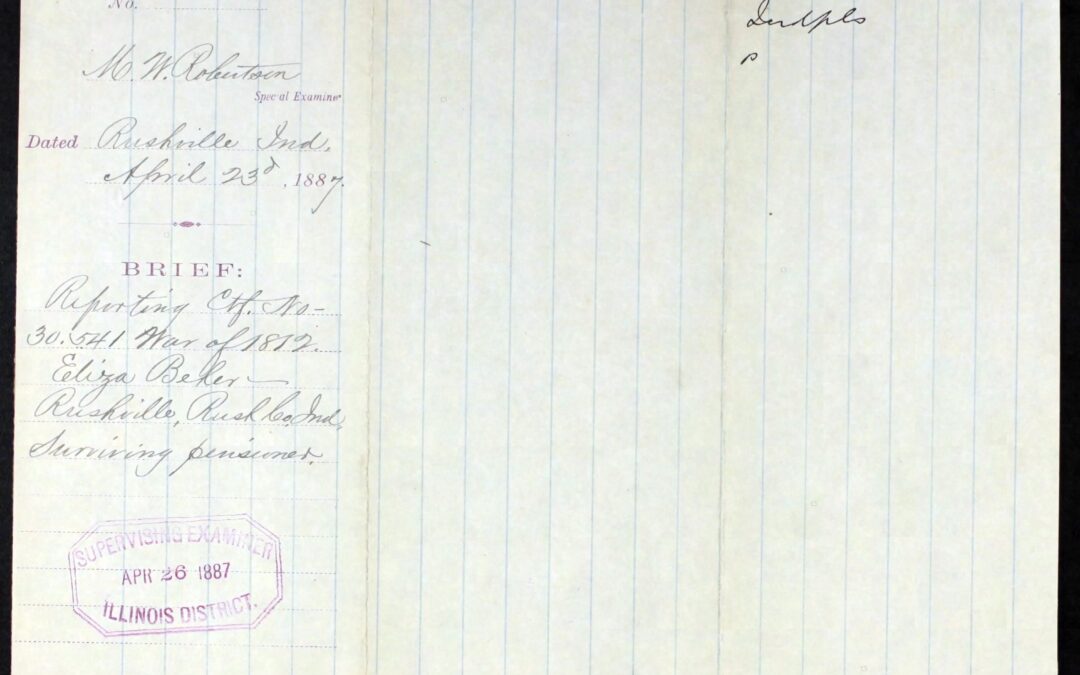 No.
M. W. Robertson
Special Examiner
Dated Rushville Ind.
April 23d, 1887.
BRIEF:
Reporting Ctf. No-
30.541 War of 1812.
Eliza Beker
Rushville, Rush Co, Ind,
Surviving pensioner.
SUPERVISING EXAMINER
APR 26 1887
ILLINOIS DISTRICT.
Indpls